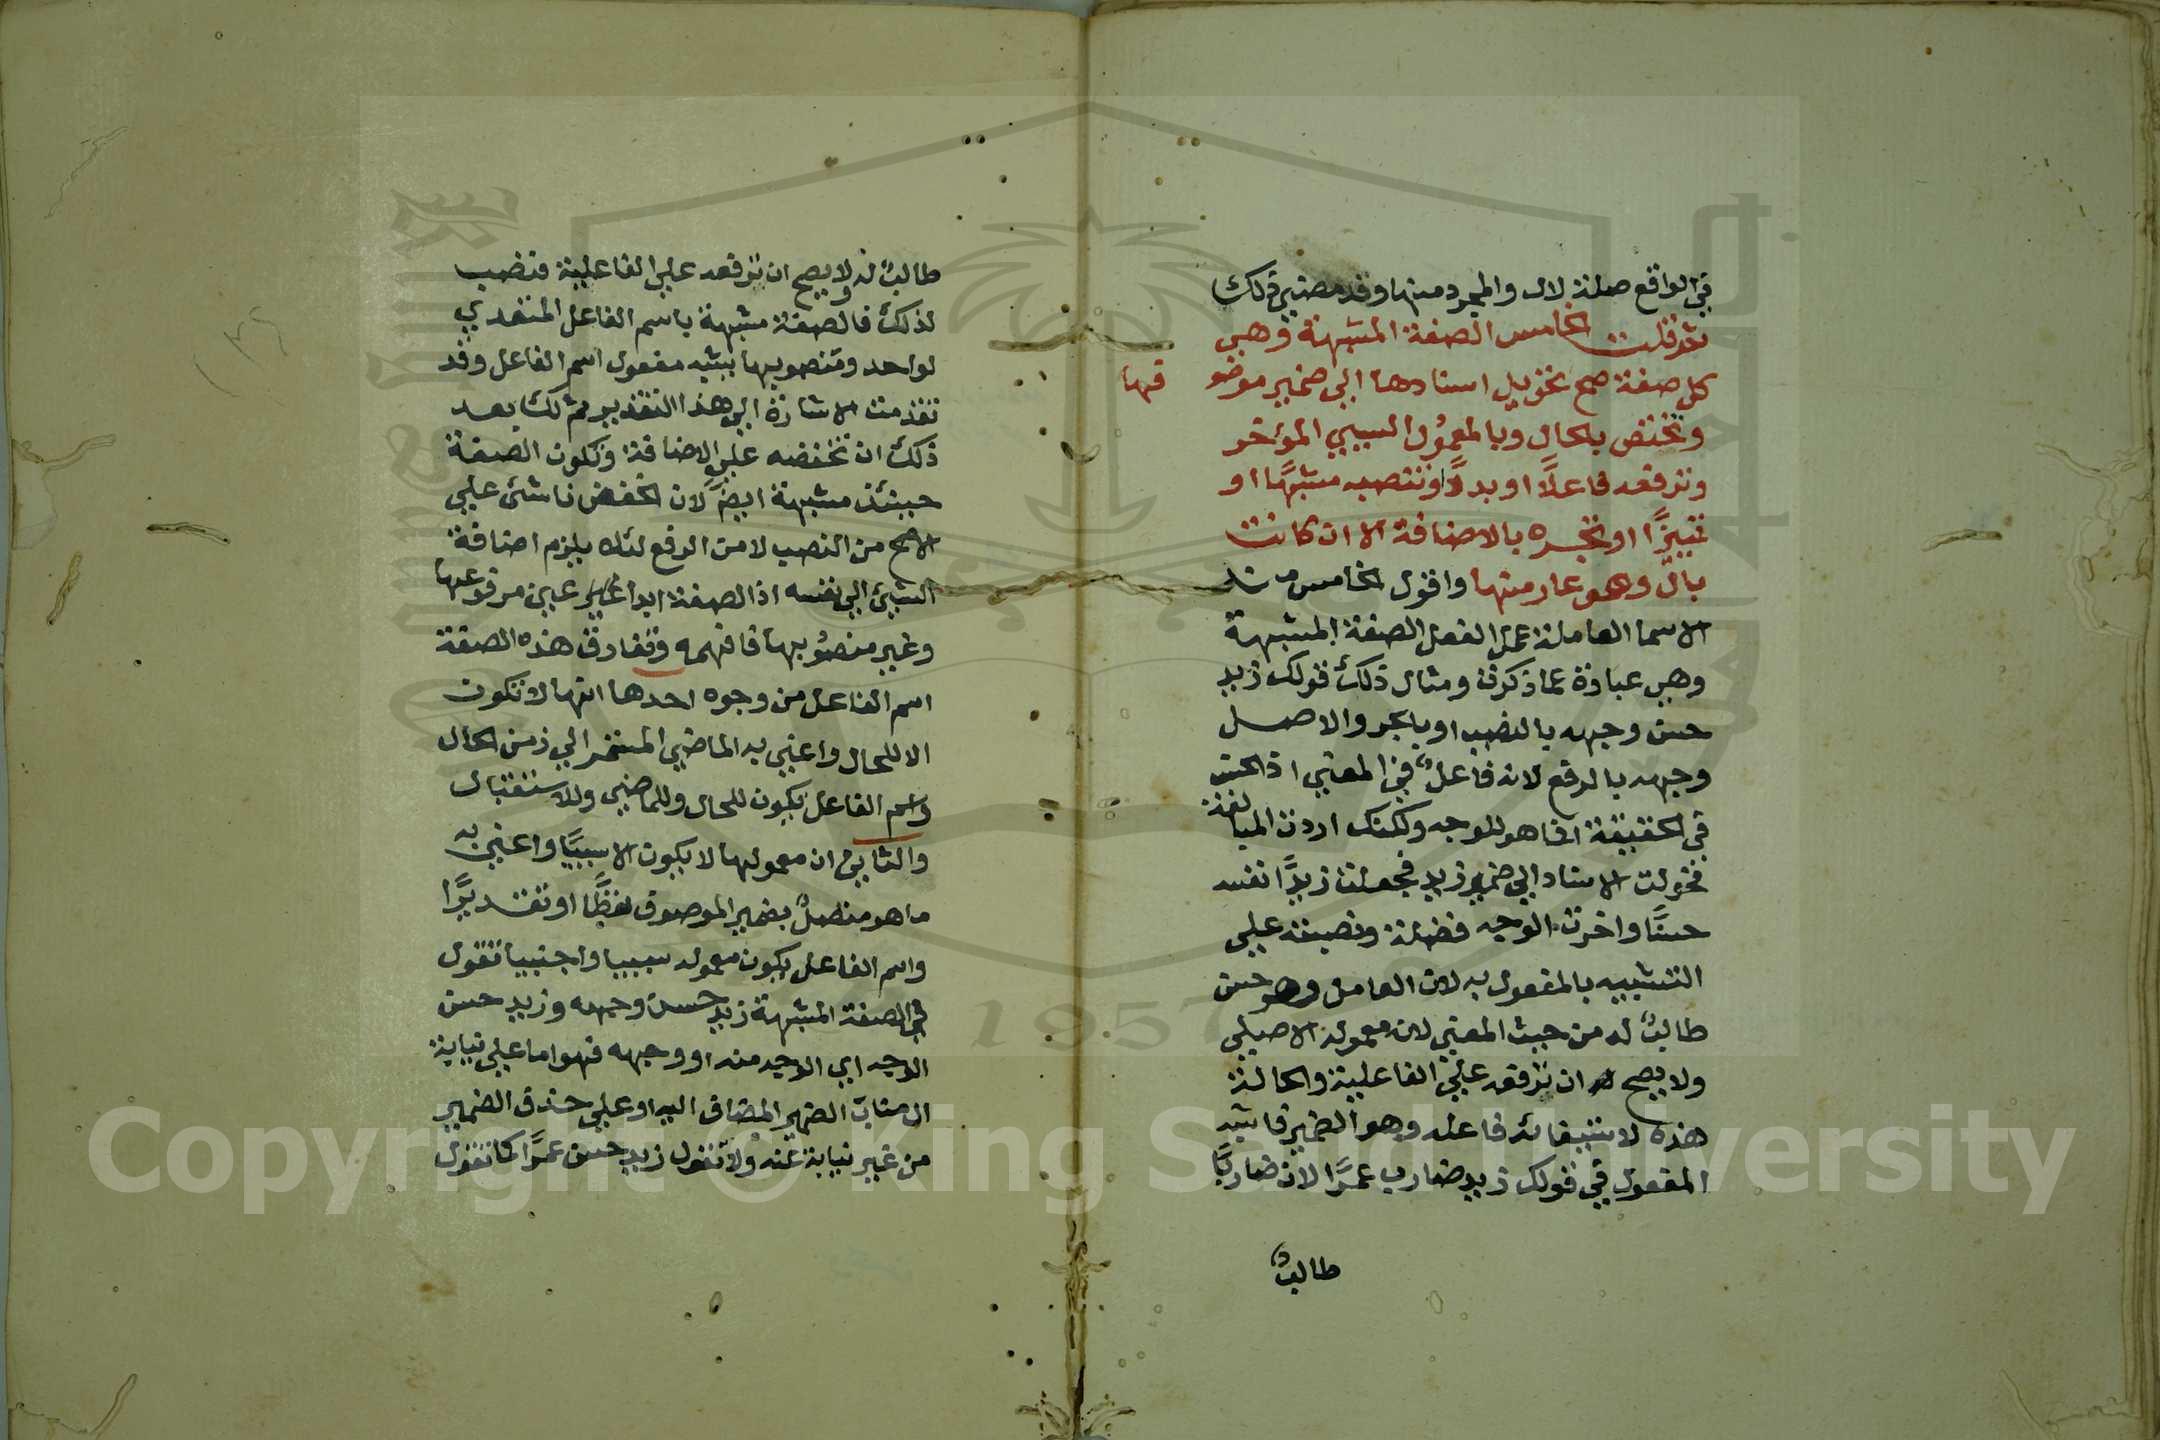 في الواقع صلة لال والمجرد منها وقد مضتي ذلك
ثم قلت الخامس الصفة المشبهة وهي
كل صفة صح تحويل اسنادها الي ضمير موصو
فها
وتختص بالحال وبالمعمول السببي المؤخر
وترفعه فاعلًا او بدلًا وتنصبه مشبهًا او
تمييزًا او تجره بالاضافة الا ان كانت
بال وهو عار منها واقول الخامس من
الاسما العاملة عمل الفعل الصفة المشبهة
وهي عبارة عما ذكرت ومثال ذلك قولك زيد
حسن وجهه بالنصب او بالجر والاصل
وجهه بالرفع لانه فاعلٌ في المعني اذ الحسن
في الحقيقة انما هو للوجه ولكنك اردت المبالغة
فحولت الاسناد الي ضمير زيد فجعلت زيدًا نفسه
حسنًا واخرت الوجه فضلة ونصبته علي
التشبيه بالمفعول به لان العامل وهو حسن
طالبٌ له من حيث المعني لان معموله الاصلي
ولا يصح ان ترفعه علي الفاعلية والحالة
هذه لاستيفائه فاعله وهو الضمير فاشبه
المفعول في قولك زيد ضارب عمرًا لان ضاربًا
طالبٌ
طالبٌ له ولا يصح ان ترفعه علي الفاعلية فنصب
لذلك فالصفة مشبهة باسم الفاعل المتعدي
لواحد ومنصوبها يشبه مفعول اسم الفاعل وقد
تقدمت الاشارة الي هذا التقدير ثم لك بعد
ذلك ان تخفضه علي الاضافة وتكون الصفة
حينئذ مشبهة ايضًا لان الخفض ناشئ علي
الاصح من النصب لا من الرفع لئلا يلزم اضافة
الشيئ الي نفسه اذ الصفة ابدا غير عين مرفوعها
وغير منصوبها فافهمه وتفارق هذه الصفة
اسم الفاعل من وجوه احدها انها لا تكون
الا للحال واعني به الماضي المستمر الي زمن الحال
واسم الفاعل يكون للحال وللماضي وللاستقبال
والثاني ان معمولها لا يكون الا سببيًا واعني به
ما هو متصلٌ بضمير الموصوف لفظًا او تقديرًا
واسم الفاعل يكون معموله سببيا واجنبيا تقول
في الصفة المشبهة زيد حسن وجهه وزيد حسن
الوجه اي الوجه منه او وجهه فهو اما علي نيابة
ال مناب الضمير المضاف اليه او علي حذف الضمير
من غير نيابة عنه ولا تقول زيد حسن عمرًا كما تقول
Copyright © King Saud University
1957